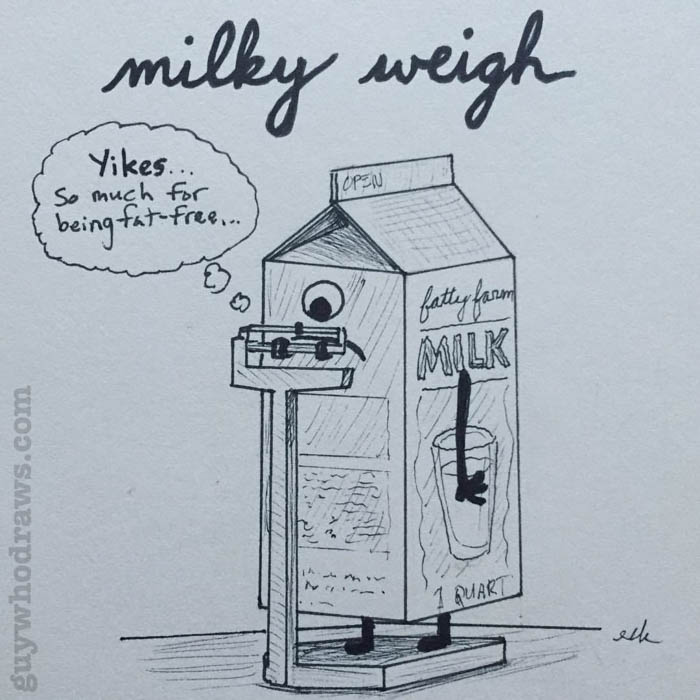 milky weigh
Yikes...
So much for
being fat-free...
OPEN
fatty farm
MILK
1 QUART
guywhodraws.com